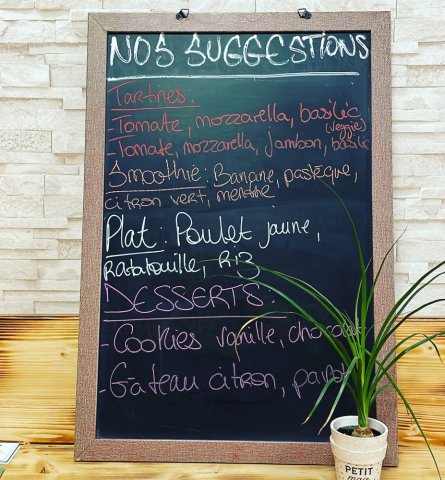 NOS SUGGESTIONS
Tartines:
-Tomate, mozzarella, basilic
(veggie)
-Tomate, mozzarella, jambon, basilic
Smoothie: Banane, pastèque,
citron vert, menthe
Plat: Poulet jaune,
Ratatouille, Riz
DESSERTS:
-Cookies vanille, chocolat
-Gâteau citron, pavot
PETIT